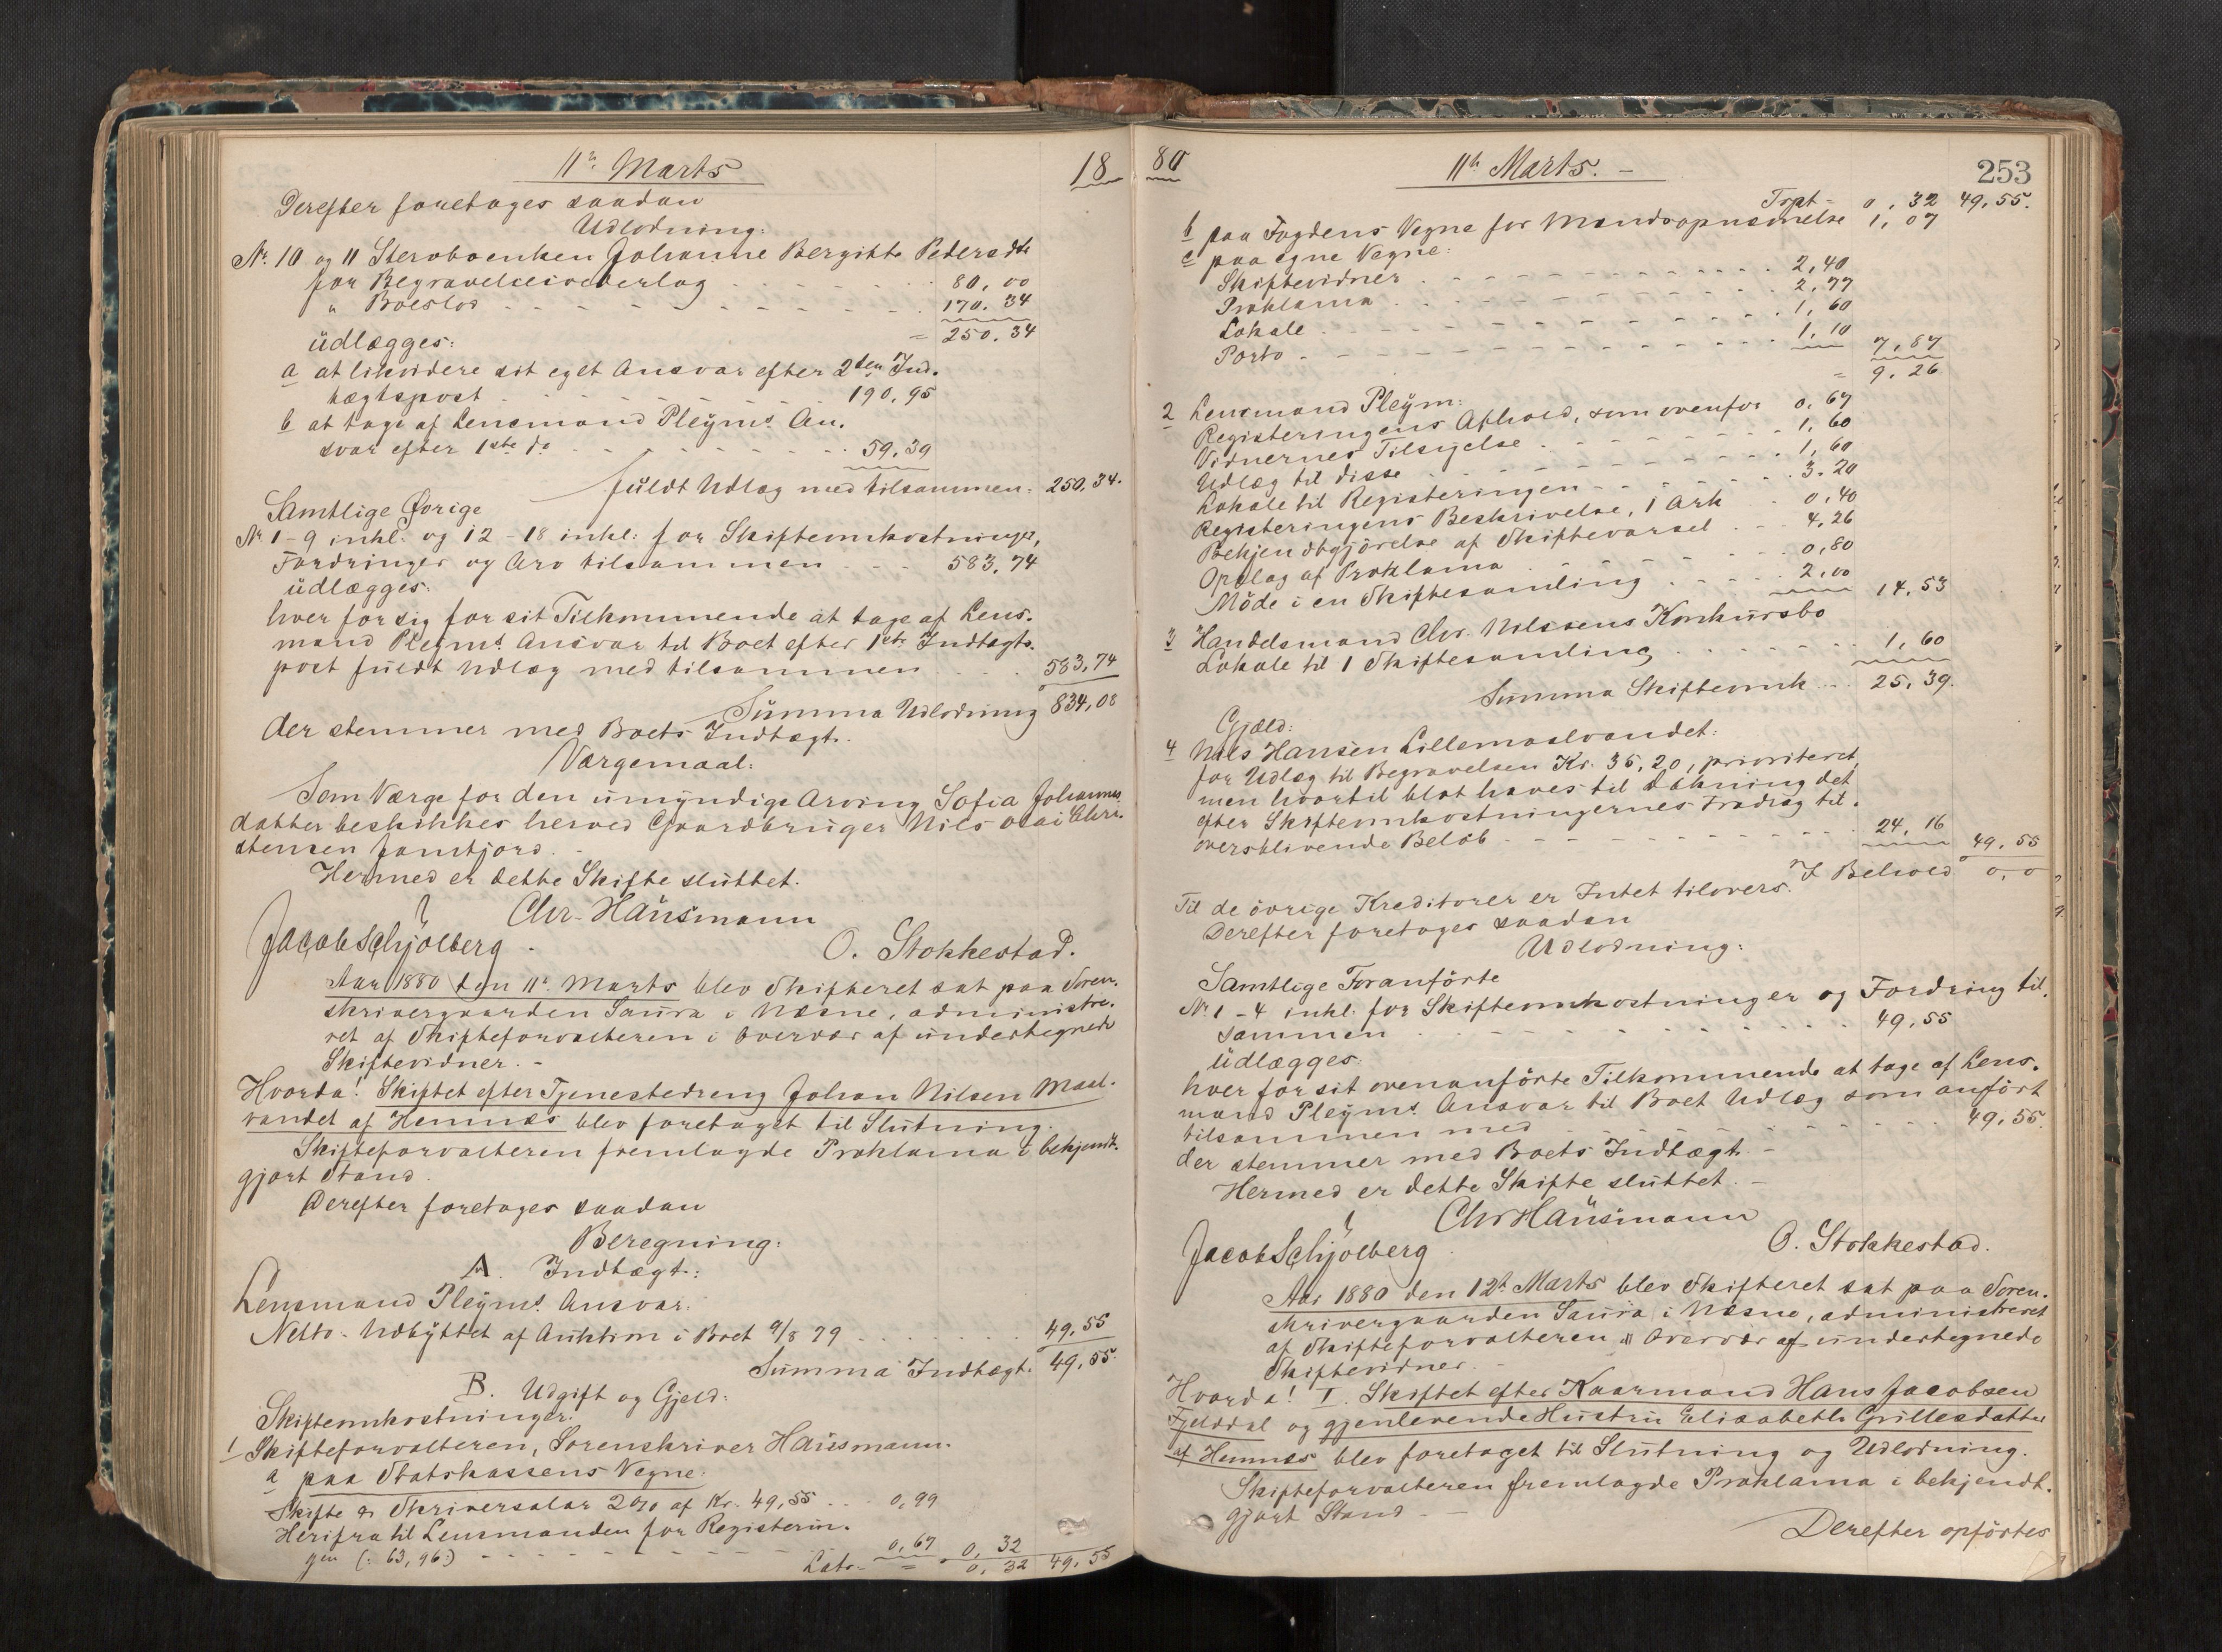 11te Marts
18
Derefter foretages saadan
Udlodning:
No. 10 og 11 Stervboenken Johanne Bergitte Pedersdtr
for Begravelses
80,00
" Boeslod
170.34
üdlægges:
= 250.34
a at likvidere sit eget Ansvar efter 2den Ind-
tægtspost
190,95
b at tage af Lensmand Pleÿms An-
svar efter 1ste do
59.39
füldt Udlæg med tilsammen. 250,34.
Samtlige Øvrige
No 1-9 inkl. og 12-18 inkl: for Skifteomkostninger,
Fordringer og Arv tilsammen 583,74
üdlægges:
hver for sig for sit Tilkommende at tage af Lens-
mand Pleÿms Ansvar til Boet efter 1ste Indtægts-
post füldt Udlæg med tilsammen 583,74
Sümma Udlodning 834,08
der stemmer med Boets Indtægt.
Værgemaal:
Som Værge for den ümÿndige Arving Sofia Johannes
datter beskikkes herved Gaardbruger Nils Olai Chri-
stensen Jamtjord.
Hermed er dette Skifte slüttet.
Chr. Haüsmann
Jacob Schjölberg
O. Stokkestad.
Aar 1880 den 11te Marts blev Skifteret sat paa Soren-
skrivergaarden Saüra i Næsne, administre-
ret af Skifteforvalteren i Overvær af undertegnede
Skiftevidner. -
Hvorda! Skiftet efter Tjenestedreng Johan Nilsen Maal-
vandet af Hemnæs blev foretaget til Slütning.
Skifteforvalteren fremlagde Proklama i bekjendt-
gjort Stand.
Derefter foretages saadan
Beregning:
A. Indtægt:
Lensmand Pleÿms Ansvar:
Netto-Udbÿttet af Auktion i Boet 9/8 79 49,55
Sümma Indtægt. 49,55.
B. Udgift og Gjeld:
Skifteomkostninger:
1 Skifteforvalteren, Sorenskriver Haüsmann.
a paa Statskassens Vegne.
Skifte & Skriversalær 2% af Kr. 49,55 0,99
Herifra til Lensmanden for Registerin-
gen (: 63,96:) 0,67 0,32
Lats = 0,32 49,55
80
11te Marts. -
253
Trpt - 0,32 49,55.
b paa Fogdens Vegne for Mandsopnævnelse 1,07
c paa egne Vegne:
Skiftevidner 2,40
Proklama 2,77
Lokale 1,60
Porto 1,10 7,87
= 9,26
2 Lensmand Pleÿm:
Registeringens Afhold, som ovenfor 0,67
Vidnernes Tilsigelse 1,60
Udlæg til disse 1,60
Lokale til Registeringen 3.20
Registeringens Beskrivelse, 1 Ark 0,40
Bekjendtgjörelse af Skiftevarsel 4,26
Opslag af Proklama 0,80
Möde i en Skiftesamling 2,00 14,53
3 Handelsmand Chr. Nilssens Konkürsbo
Lokale til 1 Skiftesamling 1,60
Sümma Skifteomk. 25,39.
Gjæld:
4 Nils Hansen Lillemaalvandet:
for Udlæg til Begravelsen Kr. 35,20, prioriteret,
men hvortil blot haves til Dækning det
efter Skifteomkostningernes Fradrag til-
oversblivende Belöb 24,16 49,55
I Behold 0,0
Til de övrige Kreditorer er Intet tilovers.
Derefter foretages saadan
Udlodning:
Samtlige Foranförte
No 1-4 inkl. for Skifteomkostninger og Fordring til-
sammen 49,55
üdlægges:
hver for sit ovenanförte Tilkommende at tage af Lens-
mand Pleÿms Ansvar til Boet Udlæg som anfört
tilsammen med 49,55.
der stemmer med Boets Indtægt. -
Hermed er dette Skifte slüttet. -
Chr Haüsmann
Jacob Schjölberg
O. Stokkestad.
Aar 1880 den 12te Marts blev Skifteret sat paa Soren-
skrivergaarden Saüra i Næsne, administreret
af Skifteforvalteren i Overvær af undertegnede
Skiftevidner. -
Hvorda! I. Skiftet efter Kaarmand Hans Jacobsen
Fjelddal og gjenlevende Hüstrü Elisabeth Grüllesdatter
af Hemnæs blev foretaget til Slütning og Udlodning.
Skifteforvalteren fremlagde Proklama i bekjendt-
gjort Stand -
Derefter opförtes